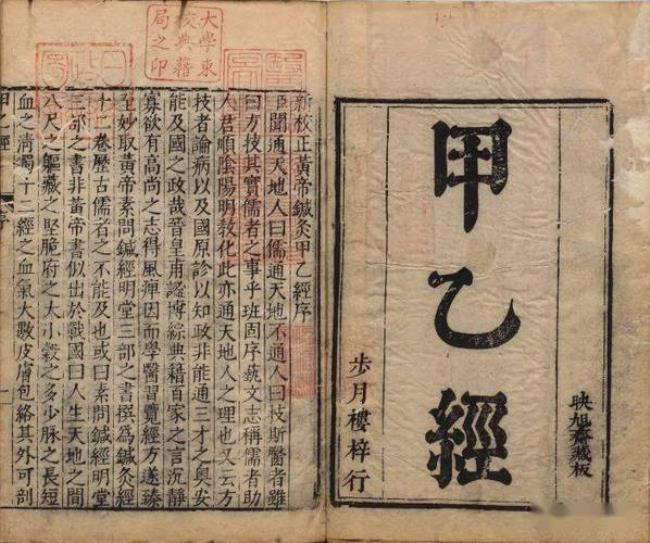 映旭齋藏板
甲乙經
步月樓梓行
大學東
校典籍
局之印
新校正黃帝鍼灸甲乙經序
臣聞通天地人曰儒通天地不通人曰技斯醫者雖
曰方技其實儒者之事乎班固序藝文志稱儒者助
人君順陰陽明教化此亦通天地人之理也又云方
技者論病以及國原診以知政非能通三才之奧安
能及國之政哉晉皇甫謐博綜典籍百家之言沉靜
寡欲有高尚之志得風痺因而學醫習覽經方遂臻
至妙取黃帝素問鍼經明堂三部之書撰爲鍼灸經
十二卷歷古儒者之不能及也或曰素問鍼經明堂
三部之書非黃帝書似出於戰國曰人生天地之間
八尺之軀藏之堅脆府之大小穀之多少脉之長短
血之清濁十二經之血氣大數皮膚包絡其外可剖
甲乙經 序 一